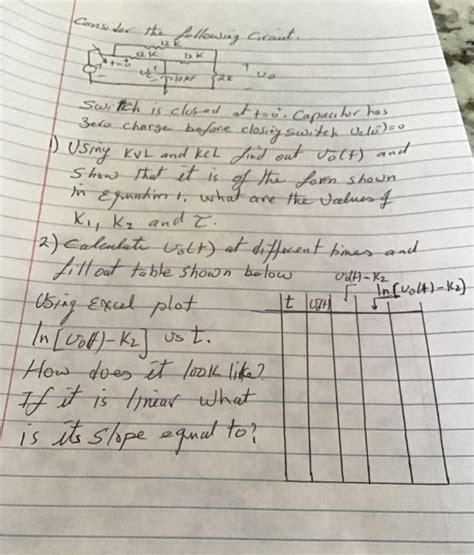 Consider the following Circuit.
12 K
12 K 12 K
t=0 Vc 10µF 2K Vo
+
-
Switch is closed at t=0. Capacitor has
Zero charge before closing switch Vc(0⁻)=0
1) Using KVL and KCL find out Vo(t) and
Show that it is of the form shown
in Equation 1. what are the values of
K₁, K₂ and τ.
2) Calculate Vo(t) at different times and
fill out table shown below
Vo(t)-K₂
ln[Vo(t)-K₂]
t Vo(t)
Using Excel plot
ln[Vo(t)-K₂] vs t.
How does it look like?
If it is linear what
is its slope equal to?